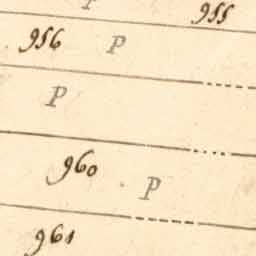 P 955
956 P
P
960 P
961